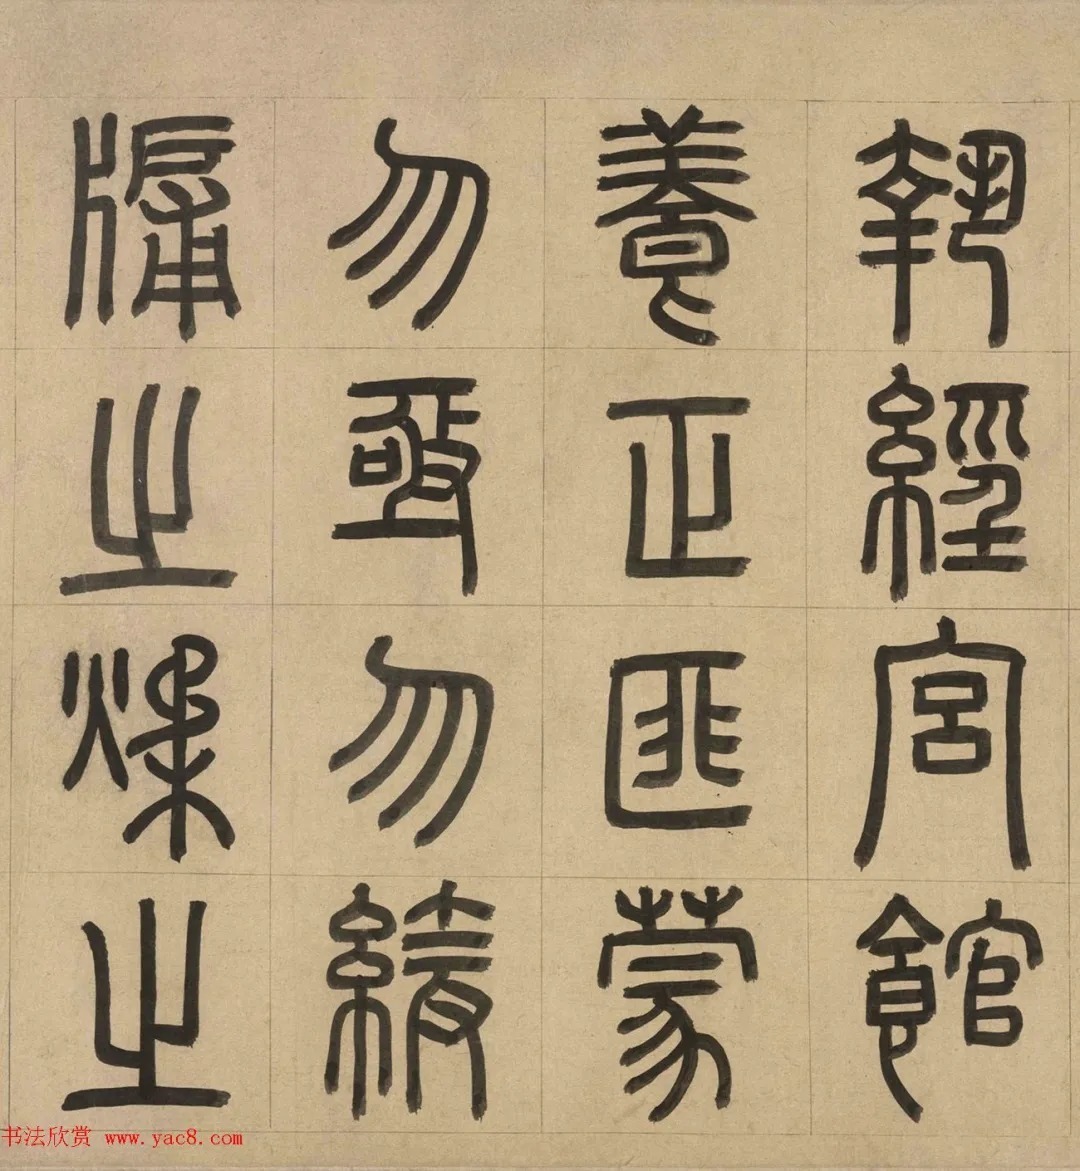 執經宮館
養正匪蒙
勿亟勿
牖之煣之
书法欣赏 www.yac8.com